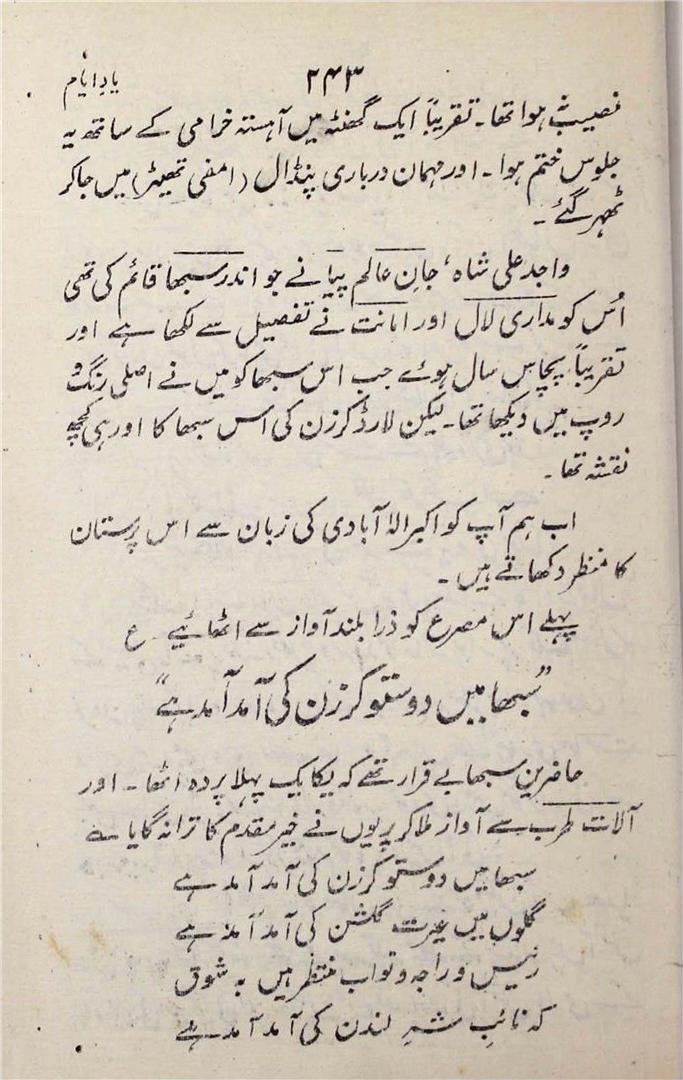 یادِ ایام
۲۴۳
نصیب ہوا تھا۔ تقریباً ایک گھنٹہ میں آہستہ خرامی کے ساتھ یہ
جلوس ختم ہوا۔ اور مہمان درباری پنڈال (امفی تھیٹر) میں جاکر
ٹھہر گئے۔
واجد علی شاہ، جانِ عالم پیا نے جو اندر سبھا قائم کی تھی
اُس کو مداری لال اور امانت نے تفصیل سے لکھا ہے اور
تقریباً پچاس سال ہوئے جب اس سبھا کو میں نے اصلی رنگ و
روپ میں دیکھا تھا۔ لیکن لارڈ کرزن کی اس سبھا کا اور ہی کچھ
نقشہ تھا۔
اب ہم آپ کو اکبر الا آبادی کی زبان سے اس پرستان
کا منظر دکھاتے ہیں۔
پہلے اس مصرع کو ذرا بلند آواز سے اٹھائیے۔ ع
”سبھا میں دوستو کرزن کی آمد آمد ہے“
حاضرینِ سبھا بے قرار تھے کہ یکایک پہلا پردہ اٹھا۔ اور
آلات طرب سے آواز ملا کر پریوں نے خیر مقدم کا ترانہ گایا ؎
سبھا میں دوستو کرزن کی آمد آمد ہے
گلوں میں غیرت گلشن کی آمد آمد ہے
رئیس و راجہ و نواب منتظر ہیں بہ شوق
کہ نائبِ شہِ لندن کی آمد آمد ہے